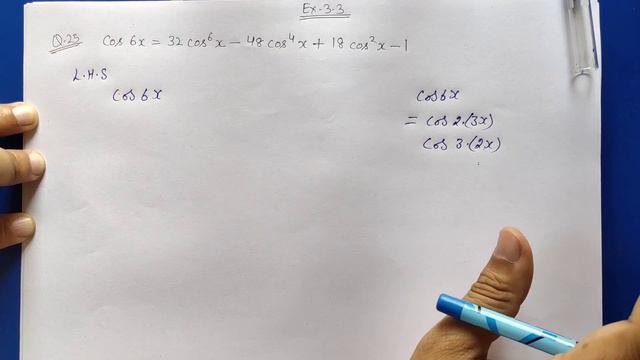 Ex-3.3
Q.25 cos 6x = 32 cos⁶x − 48 cos⁴x + 18 cos²x − 1
L.H.S
cos 6x
cos 6x
= cos 2·(3x)
cos 3·(2x)